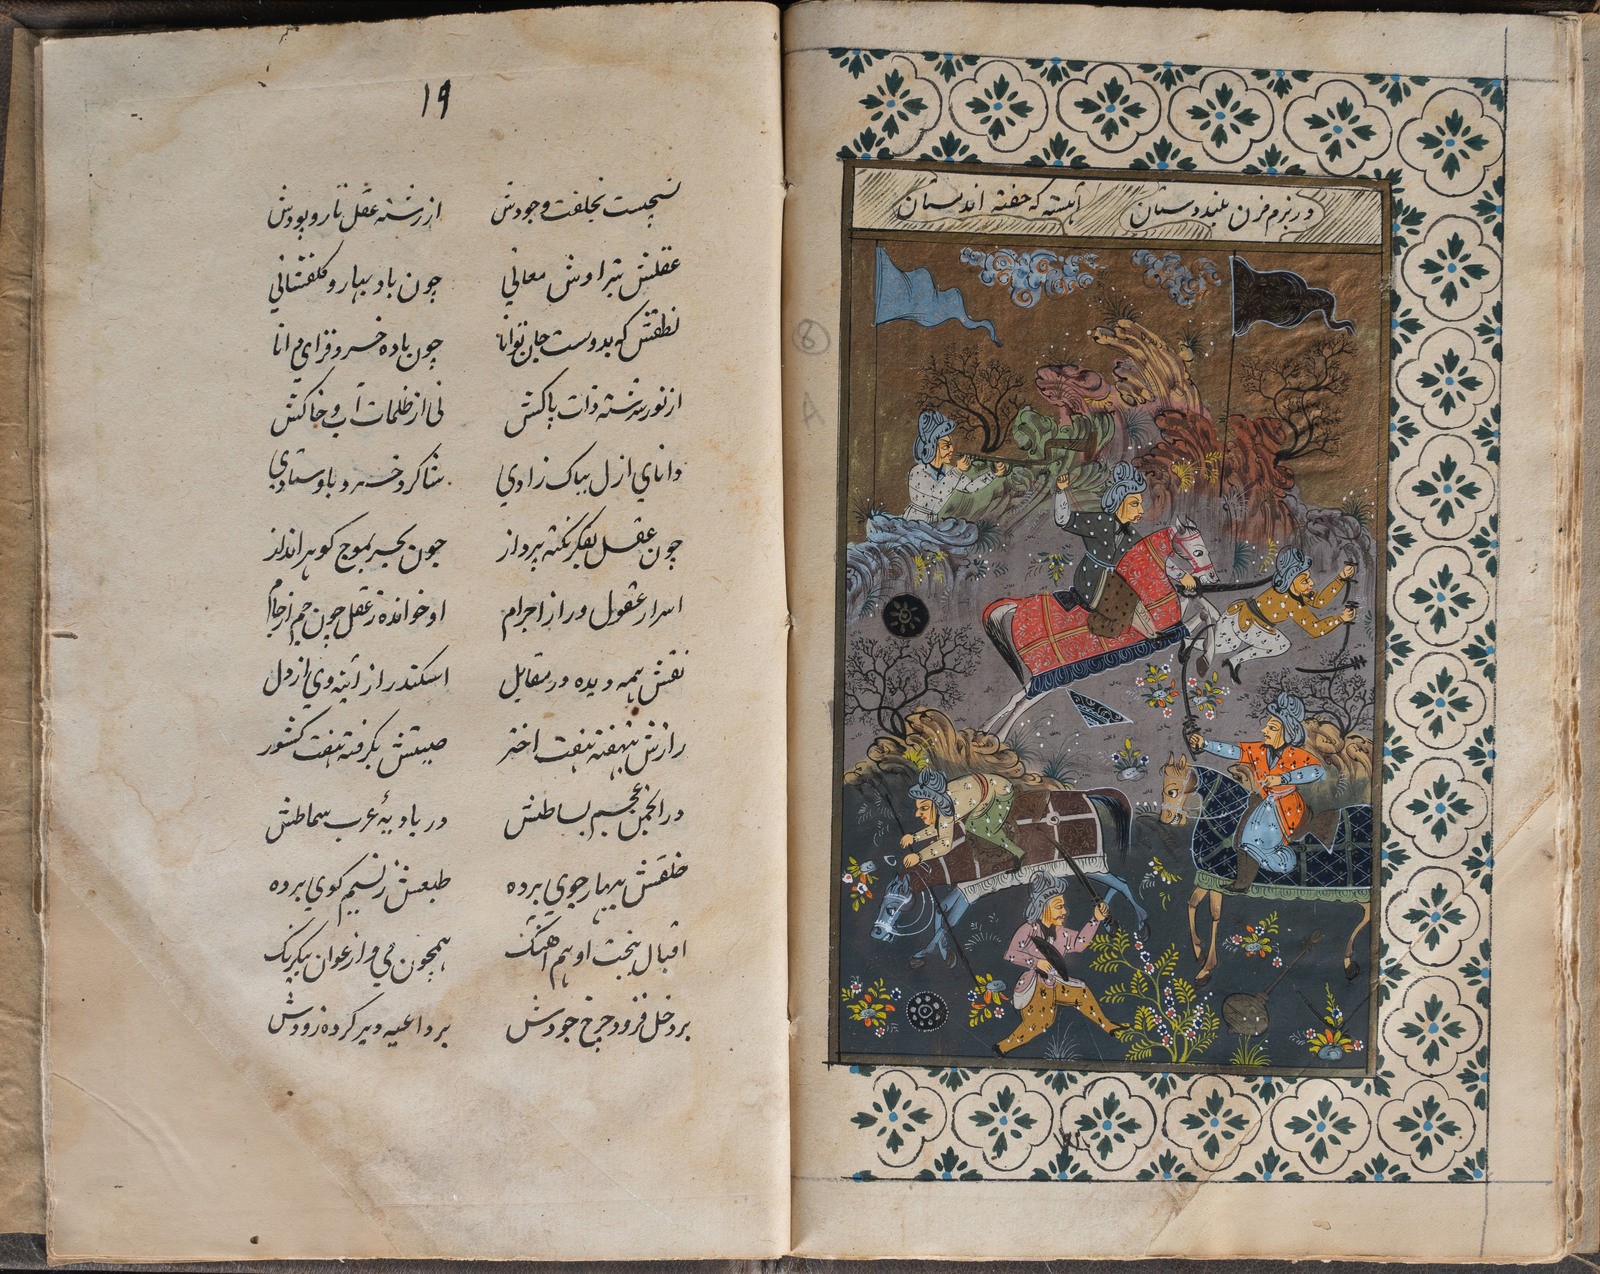 ۱۹
سنجیست بخلقت وجودش از رشته عقل تار و پودش
عقلش بتراوش معانی چون باد بهار و گلفشانی
نطقش که بدوست جان توانا چون باده خرد فزای دانا
از نور سرشته ذات پاکش نی از ظلمات آب و خاکش
دانای ازل بپاک زادی شاگرد خرد باوستادی
چون عقل بفکر نکته پرداز چون بحر بموج گوهر انداز
اسرار عقول وراز اجرام او خوانده ز عقل چون جم از جام
نقش همه دیده در مقابل اسکندر از آینه وی از دل
رازش بنهفته هفت اختر صیتش بگرفته هفت کشور
در انجمن عجم بساطش در بادیهٔ عرب سماطش
خلقش ز بهار جوی برده طبعش ز نسیم گوی برده
اقبال ببخت او هم آهنگ همچون می و ارغوان بیکرنگ
بر دخل فزود خرج جودش بر داعیه دیر کرده زودش
در بزم من بلند دستان آهسته که خفته اند مستان
8
A